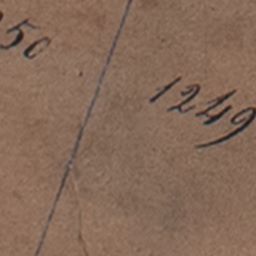 50
1249